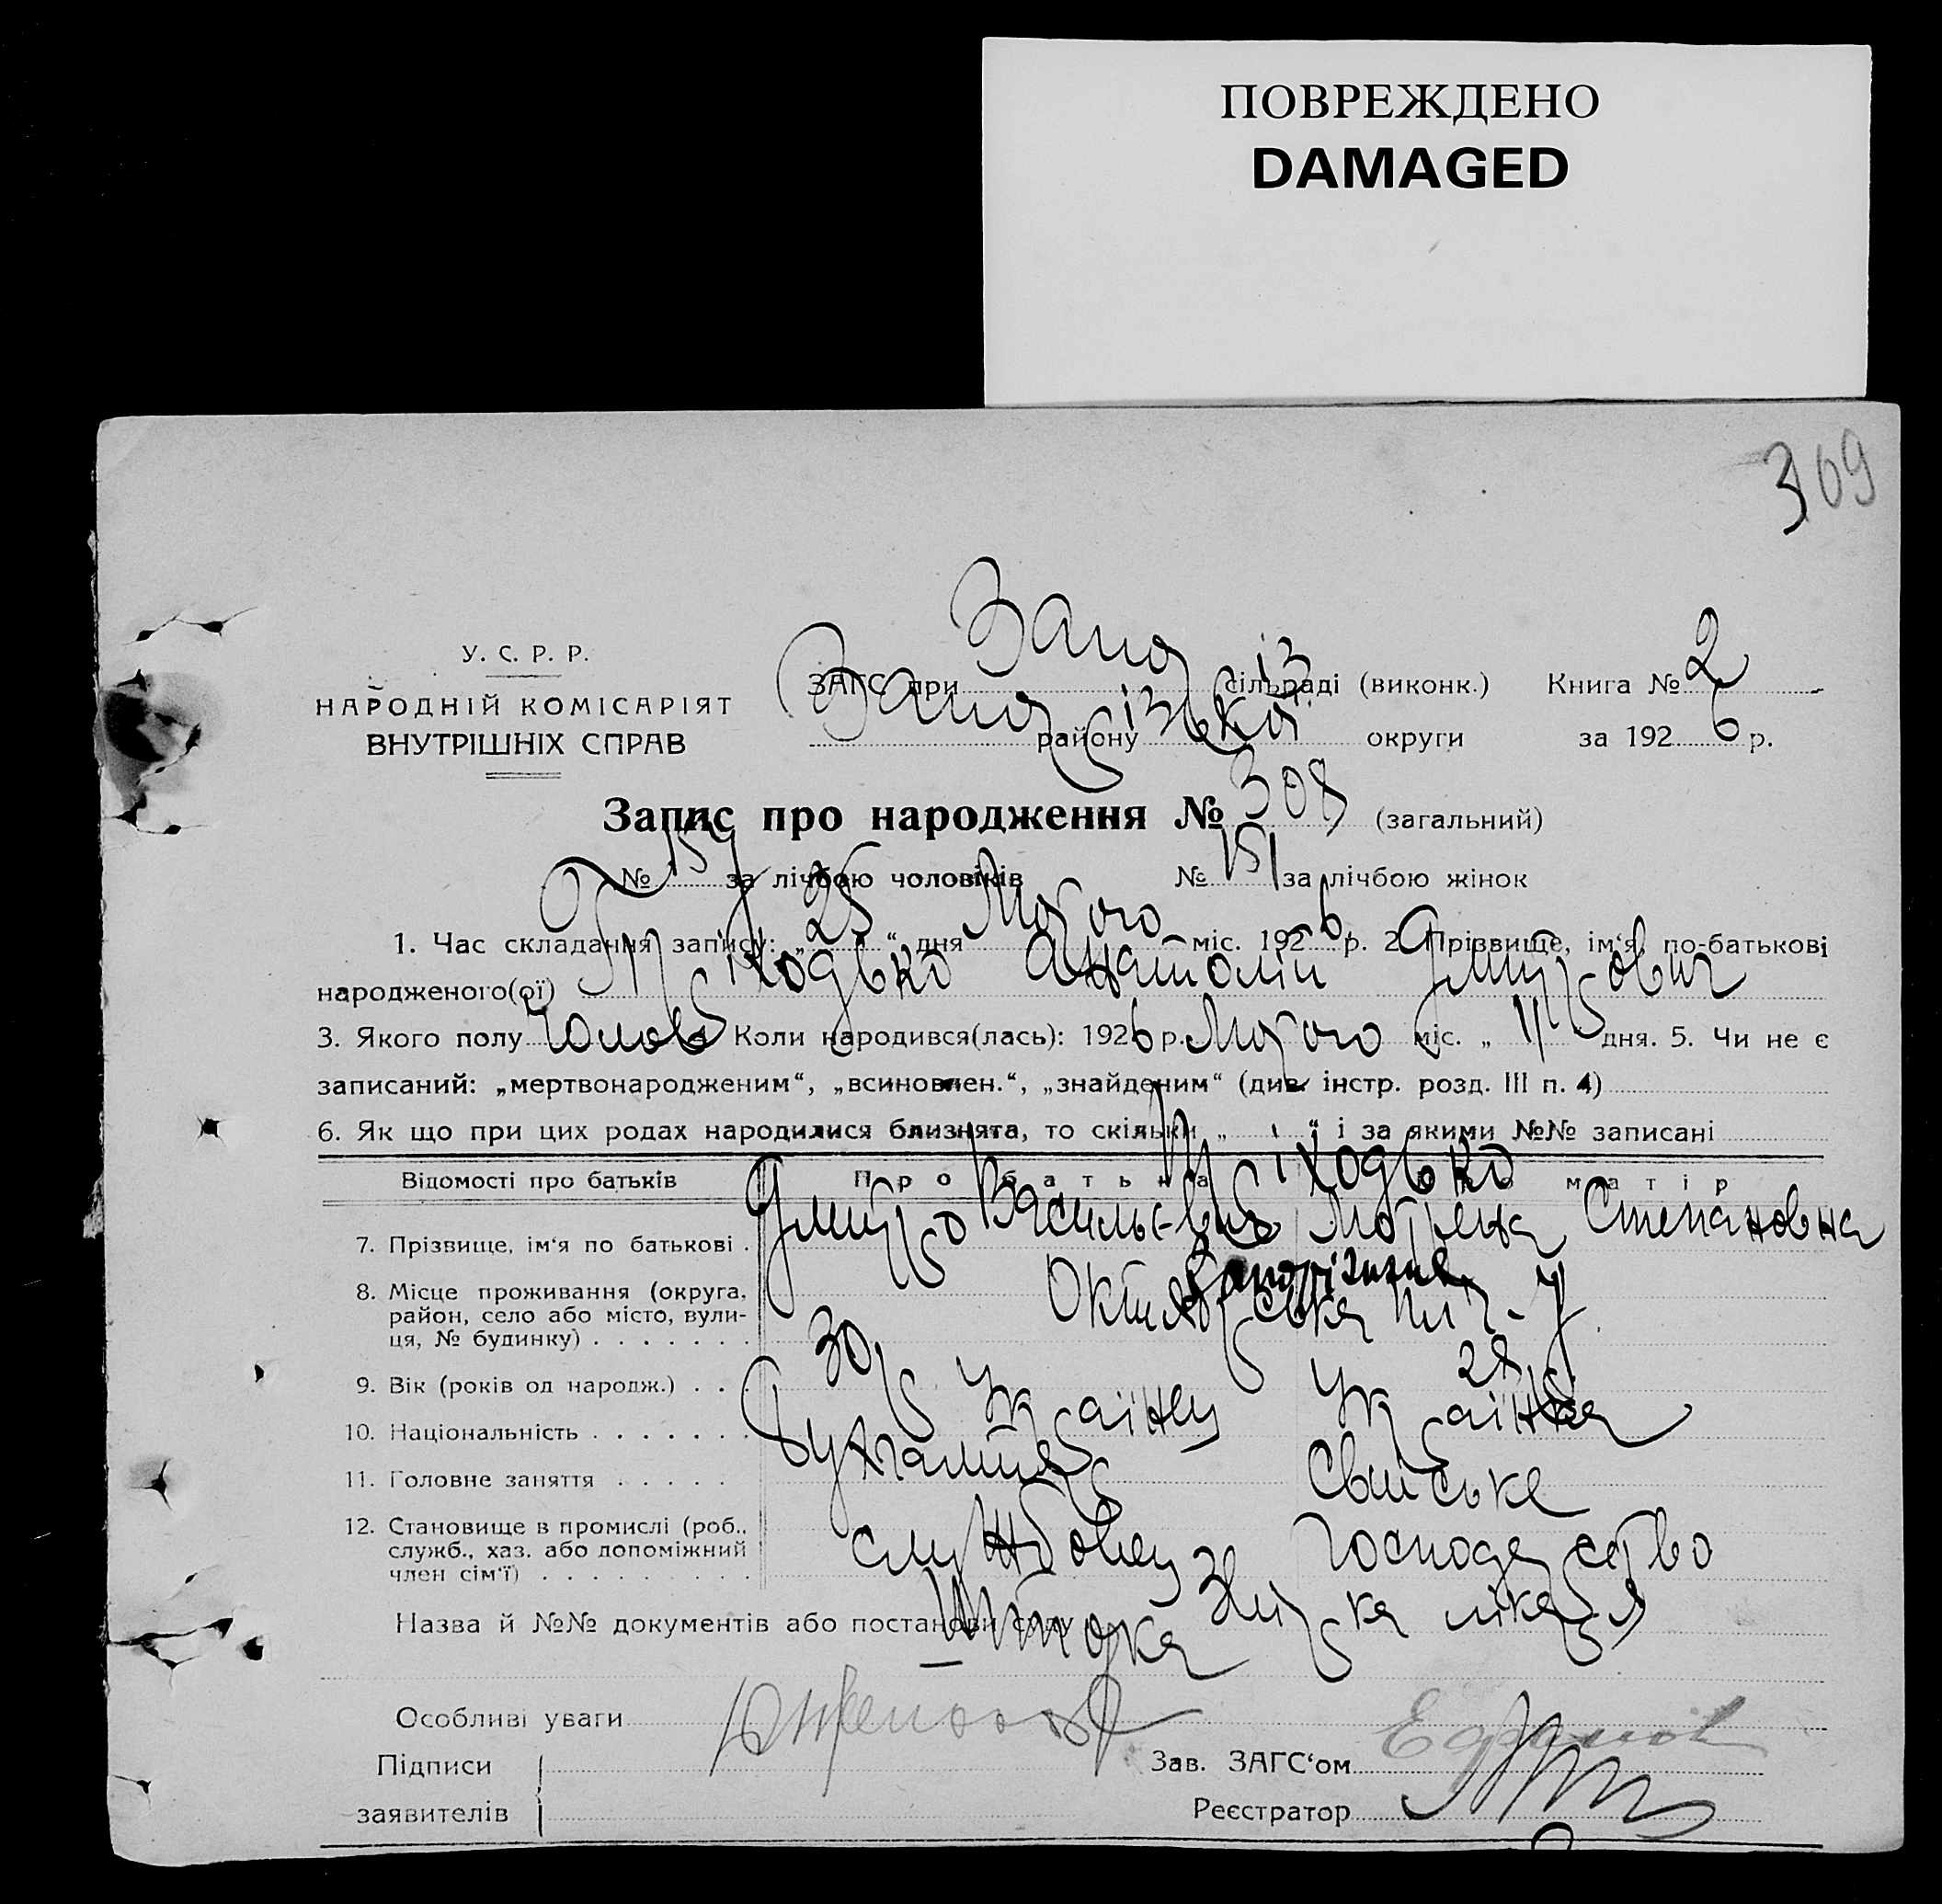 ПОВРЕЖДЕНО
DAMAGED
309
У. С. Р. Р.
НАРОДНІЙ КОМІСАРІЯТ
ВНУТРІШНІХ СПРАВ
ЗАГС при Запоріз сільраді (виконк.) Книга № 2
району Запорізька округи за 1926 р.
Запис про народження № 308 (загальний)
№ 157 за лічбою чоловіків № 151 за лічбою жінок
1. Час складання запису: „25“ дня Лютого міс. 1926 р. 2. Прізвище, ім‘я, по-батькові
народженого(ої) Приходько Анатолій Дмитрович
3. Якого полу Чолов 4 Коли народився(лась): 1926 р. Лютого міс. „11 дня. 5. Чи не є
записаний: „мертвонародженим“, „всиновлен.“, „знайденим“ (див. інстр. розд. III п. 4)
6. Як що при цих родах народилися близнята, то скільки „ “ і за якими №№ записані
Відомості про батьків Про батька матір
Приходько
7. Прізвище, ім‘я по батькові . Дмитро Васильєвич Мотрена Степановна
8. Місце проживання (округа, район, село або місто, вули-ця, № будинку) . . . . . . . Запоріжжя
Октябрська
9. Вік (років од народж.) . . . 30 р 28 р
10. Національність . . . . . . . Українец Українка
11. Головне заняття . . . . . Бухгалтер Свійське
12. Становище в промислі (роб., служб., хаз. або допоміжний член сім‘ї) . . . . . . . . . службовец господарство
Назва й №№ документів або постанови суду лікаря
Особливі уваги
Підписи
заявителів
Зав. ЗАГС‘ом
Реєстратор